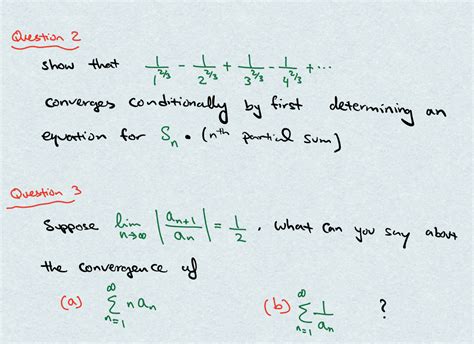 Question 2
Show that 1/1^{2/3} - 1/2^{2/3} + 1/3^{2/3} - 1/4^{2/3} + ...
converges conditionally by first determining an
equation for S_n . (nth partial sum)
Question 3
Suppose lim_{n→∞} |a_{n+1}/a_n| = 1/2 . What can you say about
the convergence of
(a) ∑_{n=1}^{∞} n a_n (b) ∑_{n=1}^{∞} 1/a_n ?